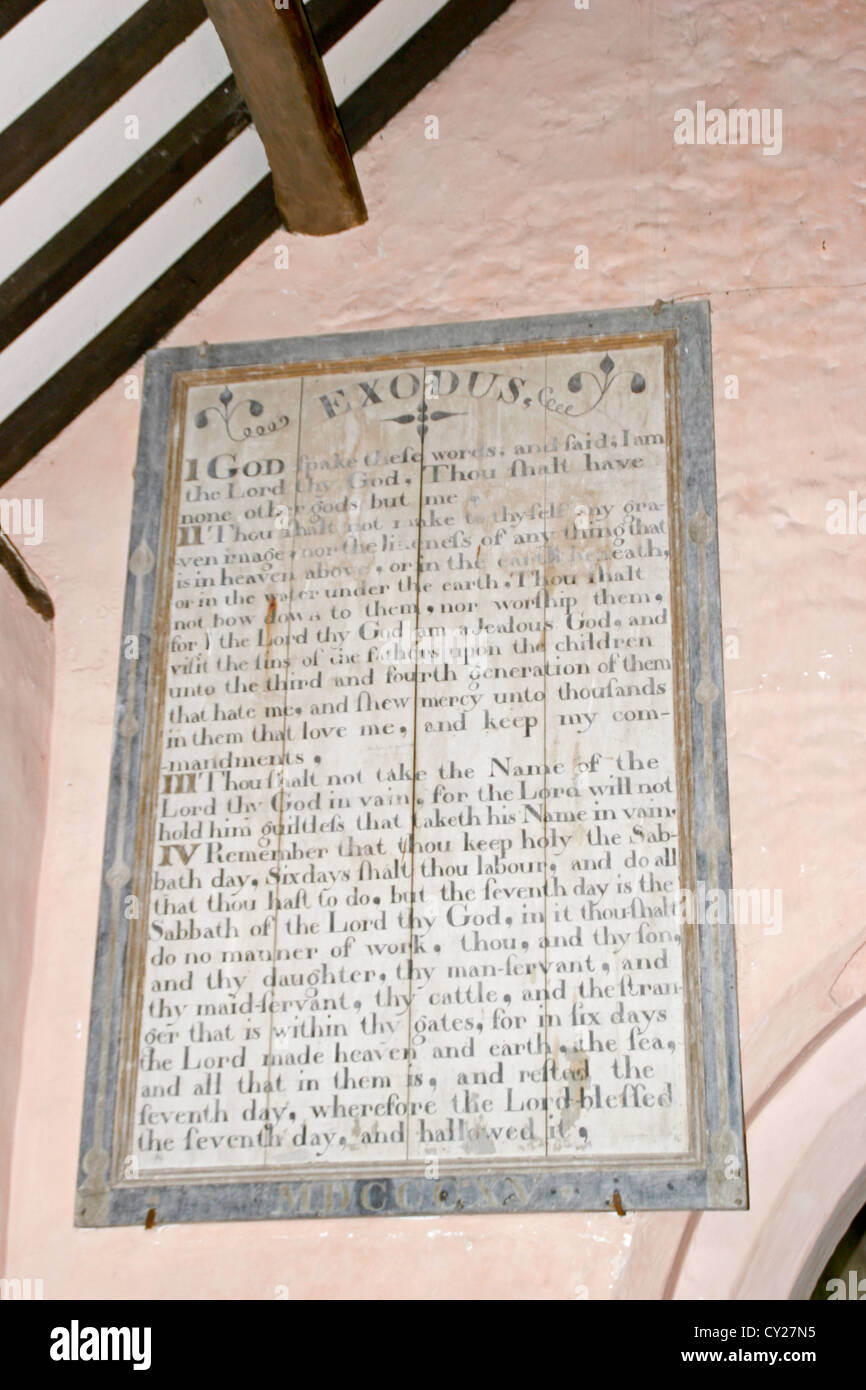 EXODUS,
I GOD ſpake theſe words, and ſaid; I am
the Lord thy God, Thou ſhalt have
none other gods but me
II Thou ſhalt not make to thyſelf any gra-
-ven image, nor the likeneſs of any thing that
is in heaven above, or in the earth beneath,
or in the water under the earth, Thou ſhalt
not bow down to them, nor worſhip them,
for I the Lord thy God am a Jealous God, and
viſit the ſins of the fathers upon the children
unto the third and fourth generation of them
that hate me, and ſhew mercy unto thouſands
in them that love me, and keep my com-
-mandments,
III Thou ſhalt not take the Name of the
Lord thy God in vain, for the Lord will not
hold him guiltleſs that taketh his Name in vain,
IV Remember that thou keep holy the Sab-
bath day, Six days ſhalt thou labour, and do all
that thou haſt to do, but the ſeventh day is the
Sabbath of the Lord thy God, in it thou ſhalt
do no manner of work, thou, and thy ſon,
and thy daughter, thy man-ſervant, and
thy maid-ſervant, thy cattle, and the ſtran-
ger that is within thy gates, for in ſix days
the Lord made heaven and earth, the ſea,
and all that in them is, and reſted the
ſeventh day, wherefore the Lord bleſſed
the ſeventh day, and hallowed it,
alamy
Image ID: CY27N5
www.alamy.com